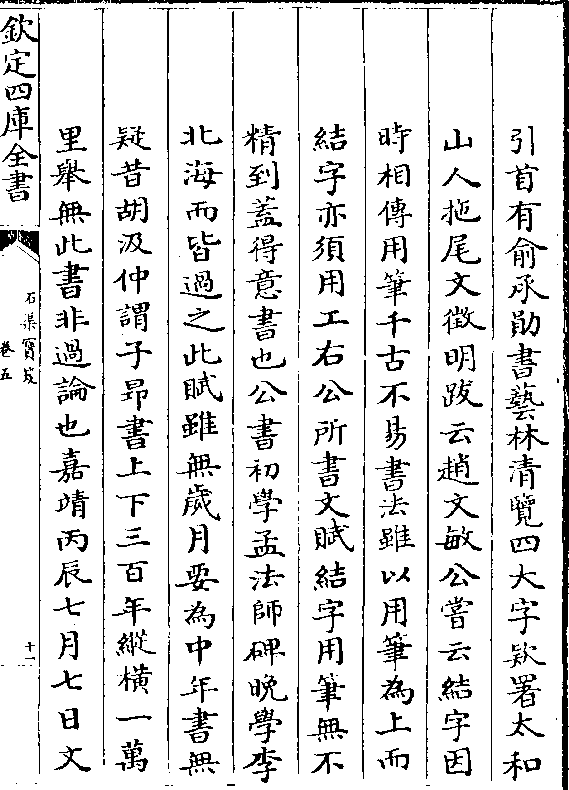 引首有俞承勛書藝林清覽四大字欵署太和
山人拖尾文徴明跋云趙文敏公嘗云結字因
時相傳用筆千古不易書法雖以用筆為上而
結字亦須用工右公所書文賦結字用筆無不
精到蓋得意書也公書初學孟法師碑晚學李
北海而皆過之此賦雖無歲月要為中年書無
疑昔胡汲仲謂子昻書上下三百年縱横一萬
里舉無此書非過論也嘉靖丙辰七月七日文
欽定四庫全書
石渠寶笈
卷五
十一